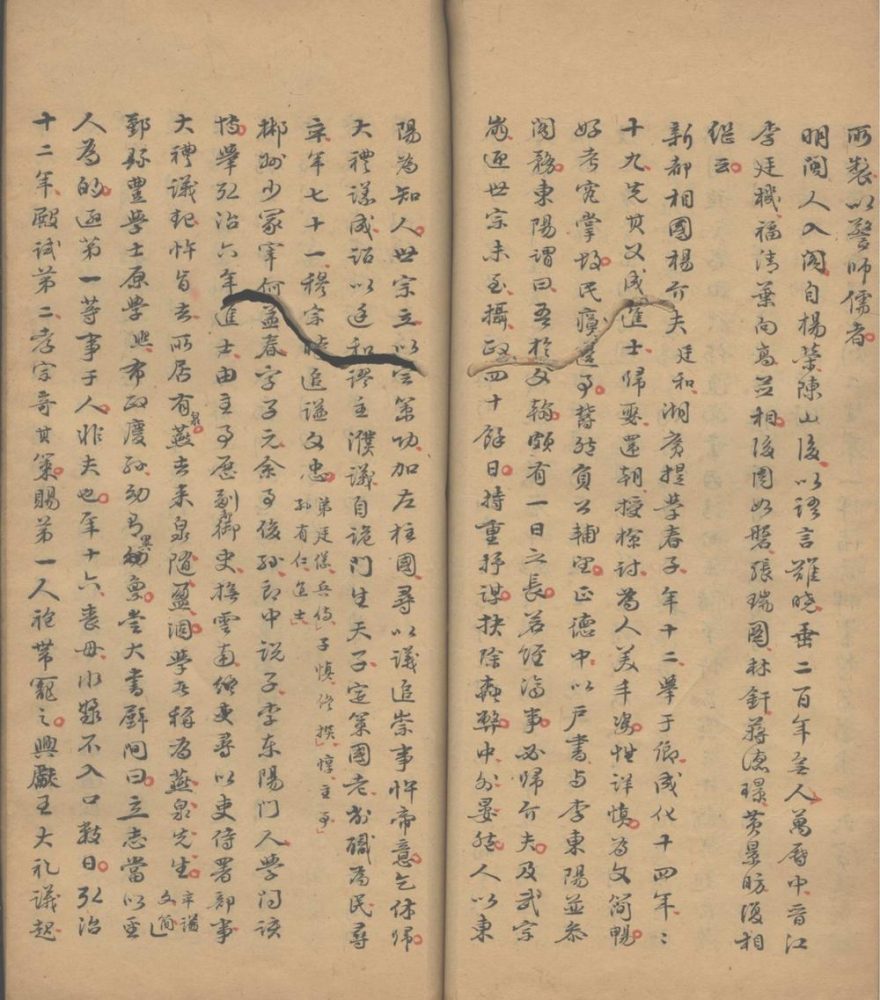 所製以警師儒者
明閩人入閣自楊榮陳山後以語言難曉垂二百年無人萬曆中晉江
李廷機福清葉向高并相後周如磐張瑞圖林釬蔣德璟黃景昉復相
繼云
新都相國楊介夫廷和湖廣提學春子年十二舉于鄉成化十四年年
十九先其父成進士歸娶還朝授檢討為人美丰姿性詳慎為文簡暢
好考究掌故民瘼邊事暨然負公輔望正德中以戶書與李東陽並參
閣務東陽謂曰吾於文翰頗有一日之長若經濟事必歸介夫及武宗
崩迎世宗未至攝政四十餘日持重抒謀扶除弊中外晏然人以東
陽為知人世宗立以定策功加左柱國尋以議追崇事忤帝意乞休歸
大禮議成詔以廷和謬主濮議自詭門生天子定策國老削職為民尋
卒年七十一穆宗時追諡文忠弟廷儀兵侍子慎修撰惇主事
孫有仁進士
郴州少冢宰何孟春字子元余事俊孫郎中說子李東陽門人學問該
博舉弘治六年進士由主事歷副御史撫雲南繼更尋以吏侍署部事
大禮議起忤旨去所居有泉燕去來泉隨盈涸學者稱為燕泉先生卒諡
文簡
鄞縣豐學士原學熙布政慶孫幼有異稟嘗大書屏間曰立志當以聖
人為的遜第一等事于人非夫也年十六喪母水漿不入口數日弘治
十二年殿試第二孝宗奇其策賜第一人袍帶寵之興獻王大礼議起